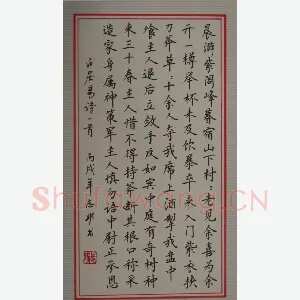 晨游紫阁峰暮宿山下村々老见余喜为余
开一樽举杯未及饮暴卒来入门紫衣挟
刀斧草々十余人夺我席上酒掣我盘中
飧主人退后立敛手反如宾中庭有奇树种
来三十春主人惜不得持斧断其根口称采
造家身属神策军主人慎勿语中尉正承恩
白居易诗一首 丙戌年 书